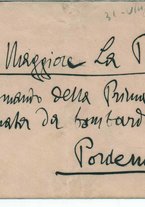 31-VIII
Maggiore La P
omando della Prima
nata da bombard
Porden